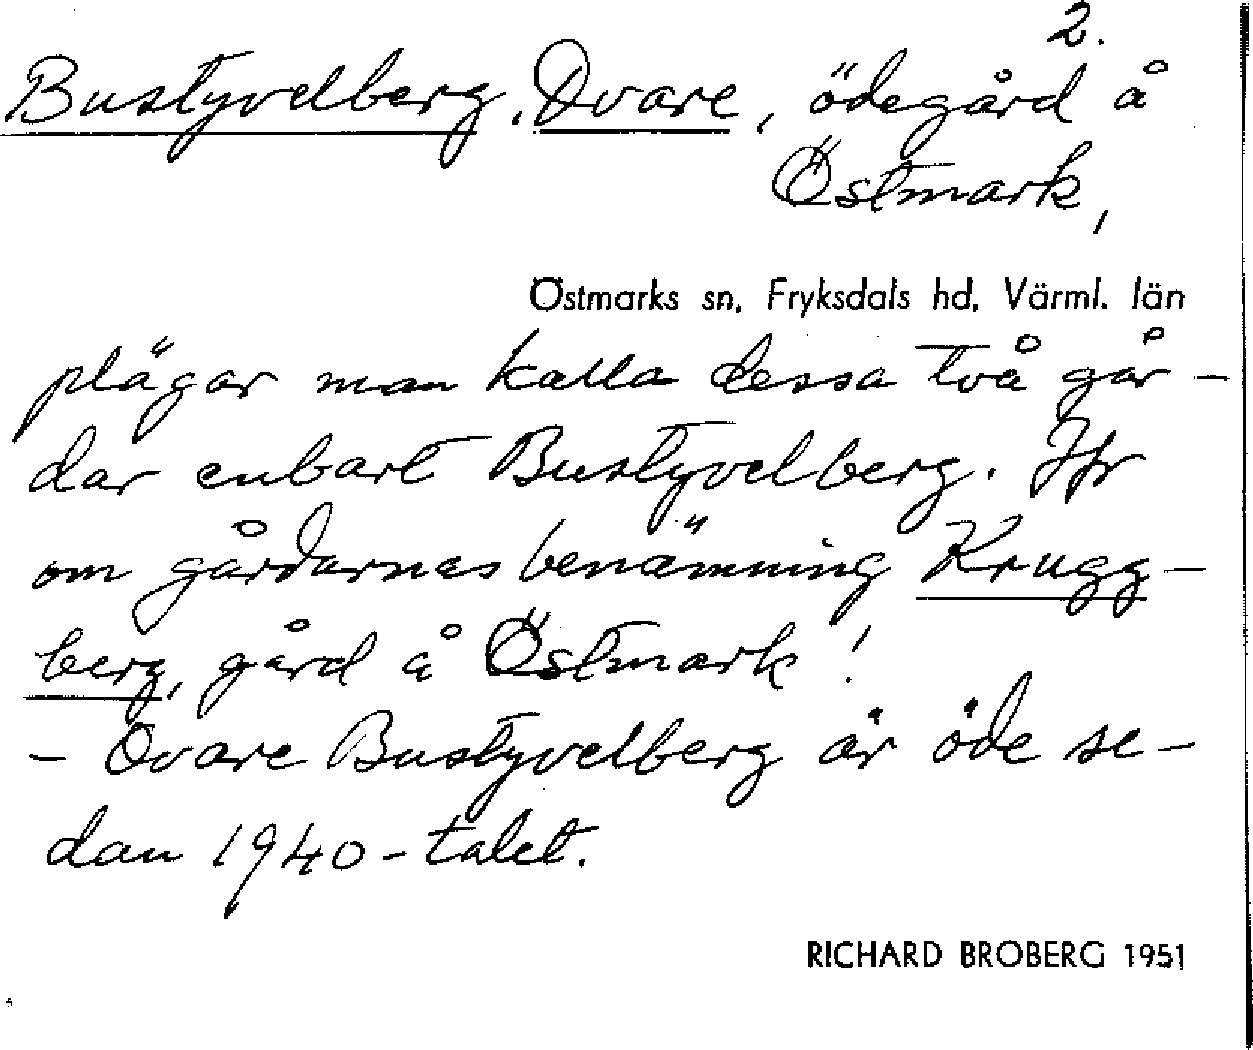 2.
Bustyvelberg, Övare, ödegård å
Östmark,
Östmarks sn, Fryksdals hd, Värml. län
plägar man kalla dessa två går-
dar enbart Bustyvelberg. Jfr
om gårdarnas benämning Krugg-
berg, gård å Östmark!
- Övare Bustyvelberg är öde se-
dan 1940-talet.
RICHARD BROBERG 1951